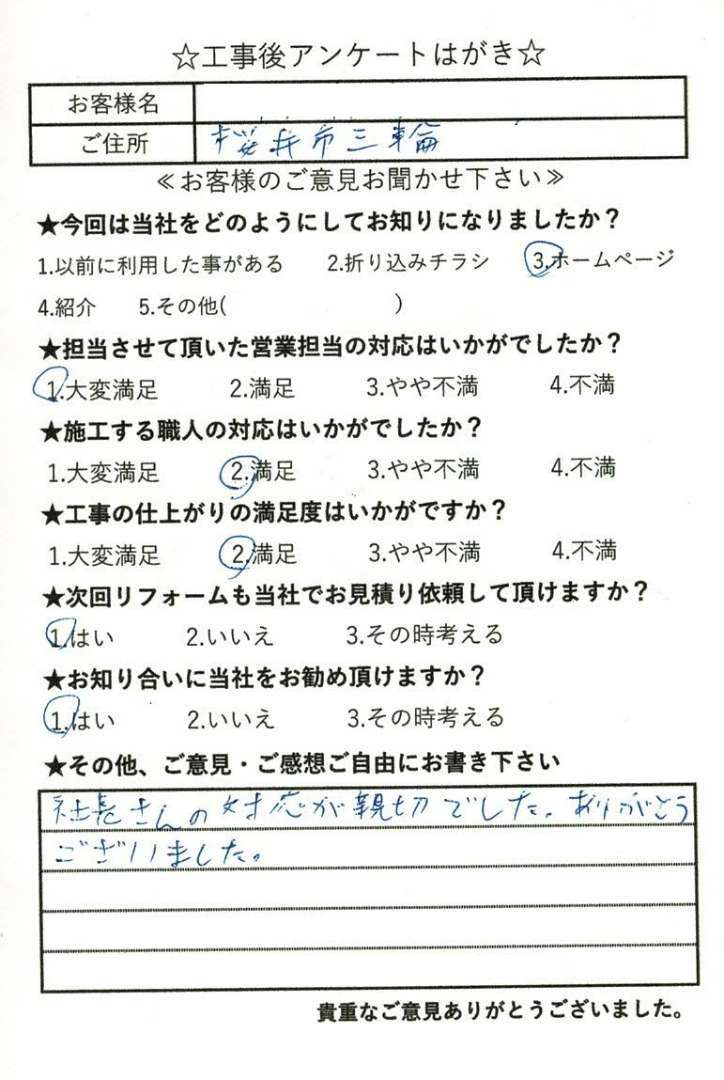 ☆工事後アンケートはがき☆
お客様名
ご住所 桜井市三輪
≪お客様のご意見お聞かせ下さい≫
★今回は当社をどのようにしてお知りになりましたか？
1.以前に利用した事がある 2.折り込みチラシ 3.ホームページ
4.紹介 5.その他( )
★担当させて頂いた営業担当の対応はいかがでしたか？
1.大変満足 2.満足 3.やや不満 4.不満
★施工する職人の対応はいかがでしたか？
1.大変満足 2.満足 3.やや不満 4.不満
★工事の仕上がりの満足度はいかがですか？
1.大変満足 2.満足 3.やや不満 4.不満
★次回リフォームも当社でお見積り依頼して頂けますか？
1.はい 2.いいえ 3.その時考える
★お知り合いに当社をお勧め頂けますか？
1.はい 2.いいえ 3.その時考える
★その他、ご意見・ご感想ご自由にお書き下さい
社長さんの対応が親切でした。ありがとう
ございました。
貴重なご意見ありがとうございました。